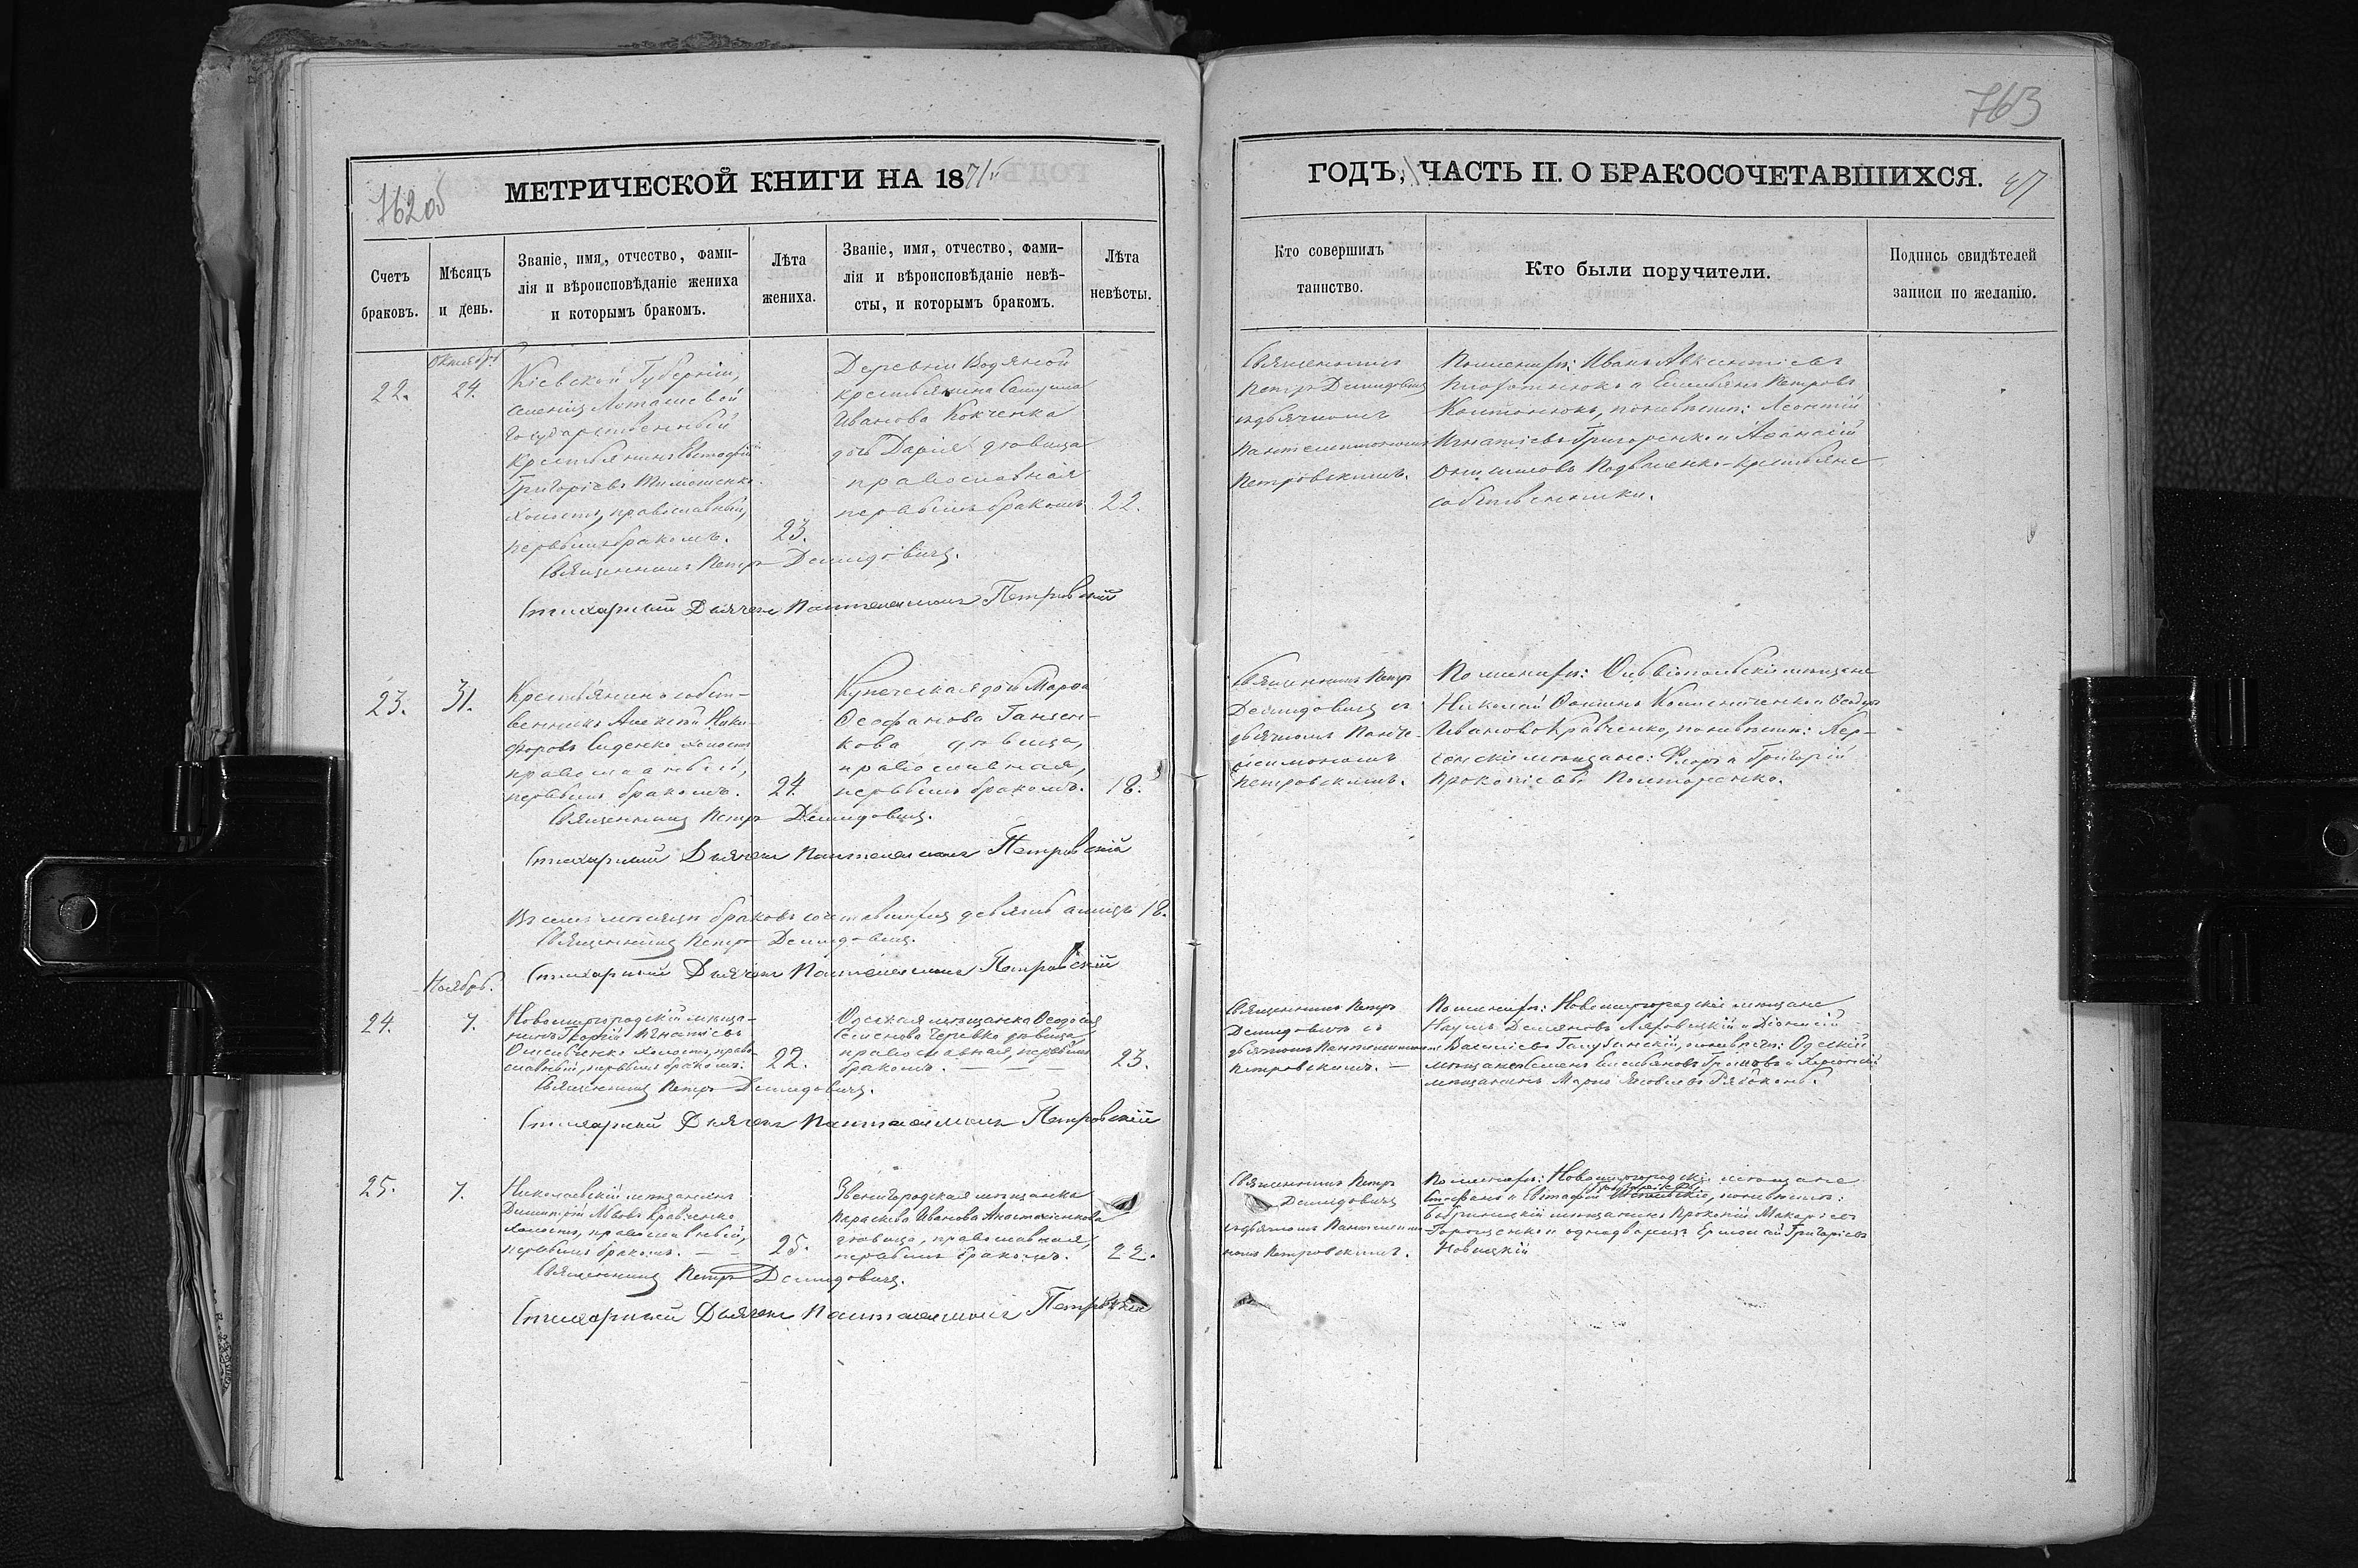 763
762об
МЕТРИЧЕСКОЙ КНИГИ НА 1871
ГОДЪ, ЧАСТЬ II. О БРАКОСОЧЕТАВШИХСЯ.
47
Счетъ
браковъ.
Мѣсяцъ
и день.
Званіе, имя, отчество, фами-
лія и вѣроисповѣданіе жениха
и которымъ бракомъ.
Лѣта
жениха.
Званіе, имя, отчество, фами-
лія и вѣроисповѣданіе невѣ-
сты, и которымъ бракомъ.
Лѣта
невѣсты.
Кто совершилъ
таинство.
Кто были поручители.
Подпись свидѣтелей
записи по желанію.
Октябрь
22.
24.
Кіевской Губерніи,
селенія
Государственный
крестьянинъ Евстафій
Григорьевъ Тимошенко
холостъ, православный,
первымъ бракомъ.
23.
Деревни Водяной
крестьянина
Иванова
дочь Дарія дѣвица
православная
первымъ бракомъ
22.
Священникъ
Петръ Демидовичъ
съ дьячкомъ
Пантелеимономъ
Петровскимъ.
По женихѣ: Иванъ Авксентіевъ
и Емельянъ Петровъ
по невѣстѣ: Леонтій
Игнатіевъ Григоренко и Аѳанасій
крестьяне
собственники.
Священникъ Петръ Демидовичъ.
Стихарный Дьячекъ Пантелеимонъ Петровскій
23.
31.
Крестьянинъ собст-
венникъ Алексѣй Ники-
форовъ Сиденко холостъ
православный,
первымъ бракомъ.
24.
Купеческая дочь Марѳа
Ѳеофанова
дѣвица,
православная,
первымъ бракомъ.
18.
Священникъ Петръ
Демидовичъ съ
дьячкомъ Панте-
леимономъ
Петровскимъ.
По женихѣ: Ольвіопольскіе мѣщане
Николай и Ѳедоръ
Ивановъ Кравченко, по невѣстѣ: Хер-
сонскіе мѣщане: Флоръ и Григорій
Прокопіевы
Священникъ Петръ Демидовичъ.
Стихарный Дьячекъ Пантелеимонъ Петровскій
Въ семъ мѣсяцѣ браковъ
18.
Священникъ Петръ Демидовичъ.
Стихарный Дьячекъ Пантелеимонъ Петровскій
Ноябрь.
24.
7.
Новомиргородскій мѣща-
нинъ Игнатіевъ
холостъ, право-
славный, первымъ бракомъ.
22.
Одесская мѣщанка Ѳеодосія
Семенова Черевко дѣвица,
православная, первымъ
бракомъ.
23.
Священникъ Петръ
Демидовичъ съ
дьячкомъ Пантелеимономъ
Петровскимъ.
По женихѣ: Новомиргородскіе мѣщане
Наумъ Демяновъ и Діонисій
Василіевъ по невѣстѣ: Одескій
мѣщанинъ Семенъ Емельяновъ и Херсонскій
мѣщанинъ Марко Яковлевъ
Священникъ Петръ Демидовичъ.
Стихарный Дьячекъ Пантелеимонъ Петровскій
25.
7.
Николаевскій мѣщанинъ
Димитрій Львовъ Кравченко
холостъ, православный,
первымъ бракомъ.
25.
Звенигородская мѣщанка
Параскева Иванова
дѣвица, православная,
первымъ бракомъ.
22.
Священникъ Петръ
Демидовичъ
съ дьячкомъ Пантелеи-
мономъ Петровскимъ.
По женихѣ: Новомиргородскіе мѣщане
Стефанъ и Евстафій по невѣстѣ:
Бобринецкій мѣщанинъ Прокопій Макаріевъ
и однодворецъ Ермолай Григоріевъ
Новицкій
Священникъ Петръ Демидовичъ.
Стихарный Дьячекъ Пантелеимонъ Петровскій